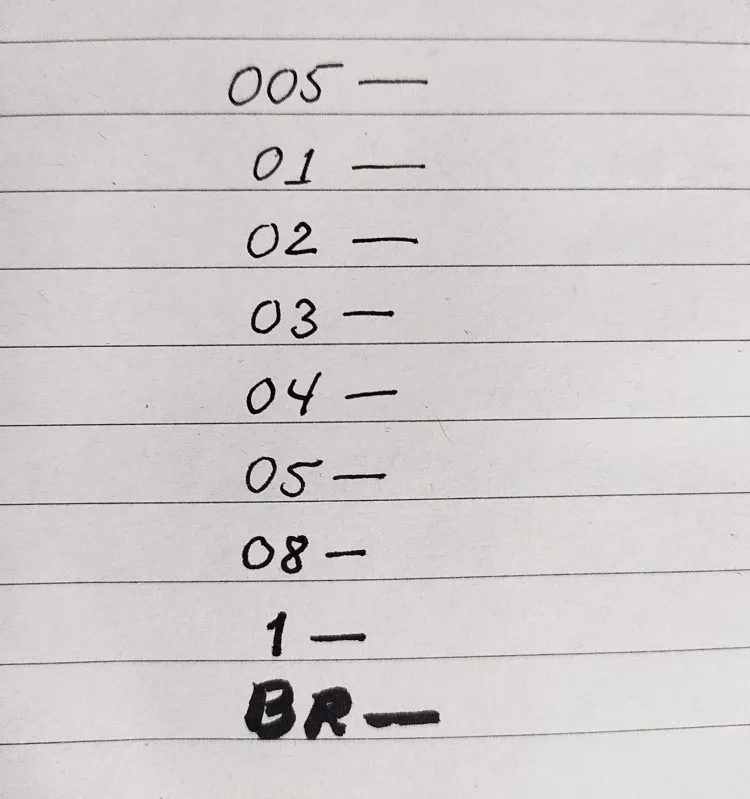 005 —
01 —
02 —
03 —
04 —
05 —
08 —
1 —
BR —